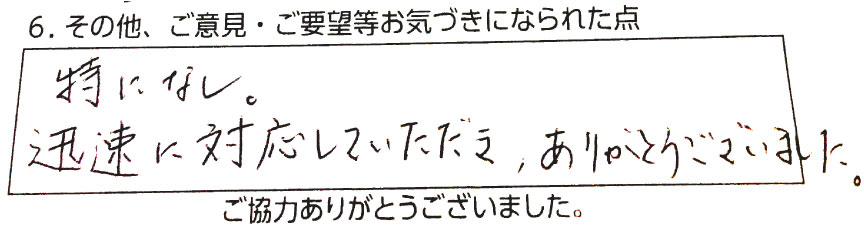 6. その他、ご意見・ご要望等お気づきになられた点
特になし。
迅速に対応していただき,ありがとうございました。
ご協力ありがとうございました。